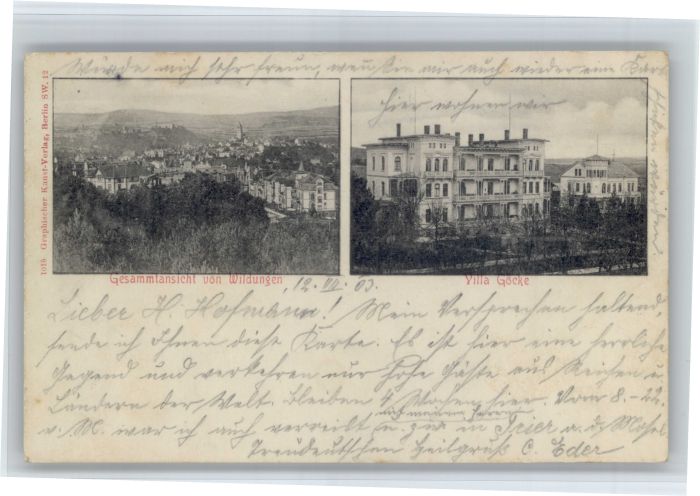 Würde mich sehr freun, wen Sie mir auch wieder eine Karte
hier wohnen wir
1015 Graphischer Kunst-Verlag, Berlin SW. 12
Gesammtansicht von Wildungen
Villa Göcke
12. VII. 03.
Lieber H. Hofmann! Mein Versprechen haltend,
sende ich Ihnen diese Karte. Es ist hier eine herrliche
Gegend und verkehren nur hohe Gäste aus Reichen u.
Ländern der Welt. Bleiben 4 Wochen hier. Vom 8. - 22.
v. M. war ich auch verreist u. zwar in Trier a. d. Mosel
Treudeutschen Heilgruß C. Eder